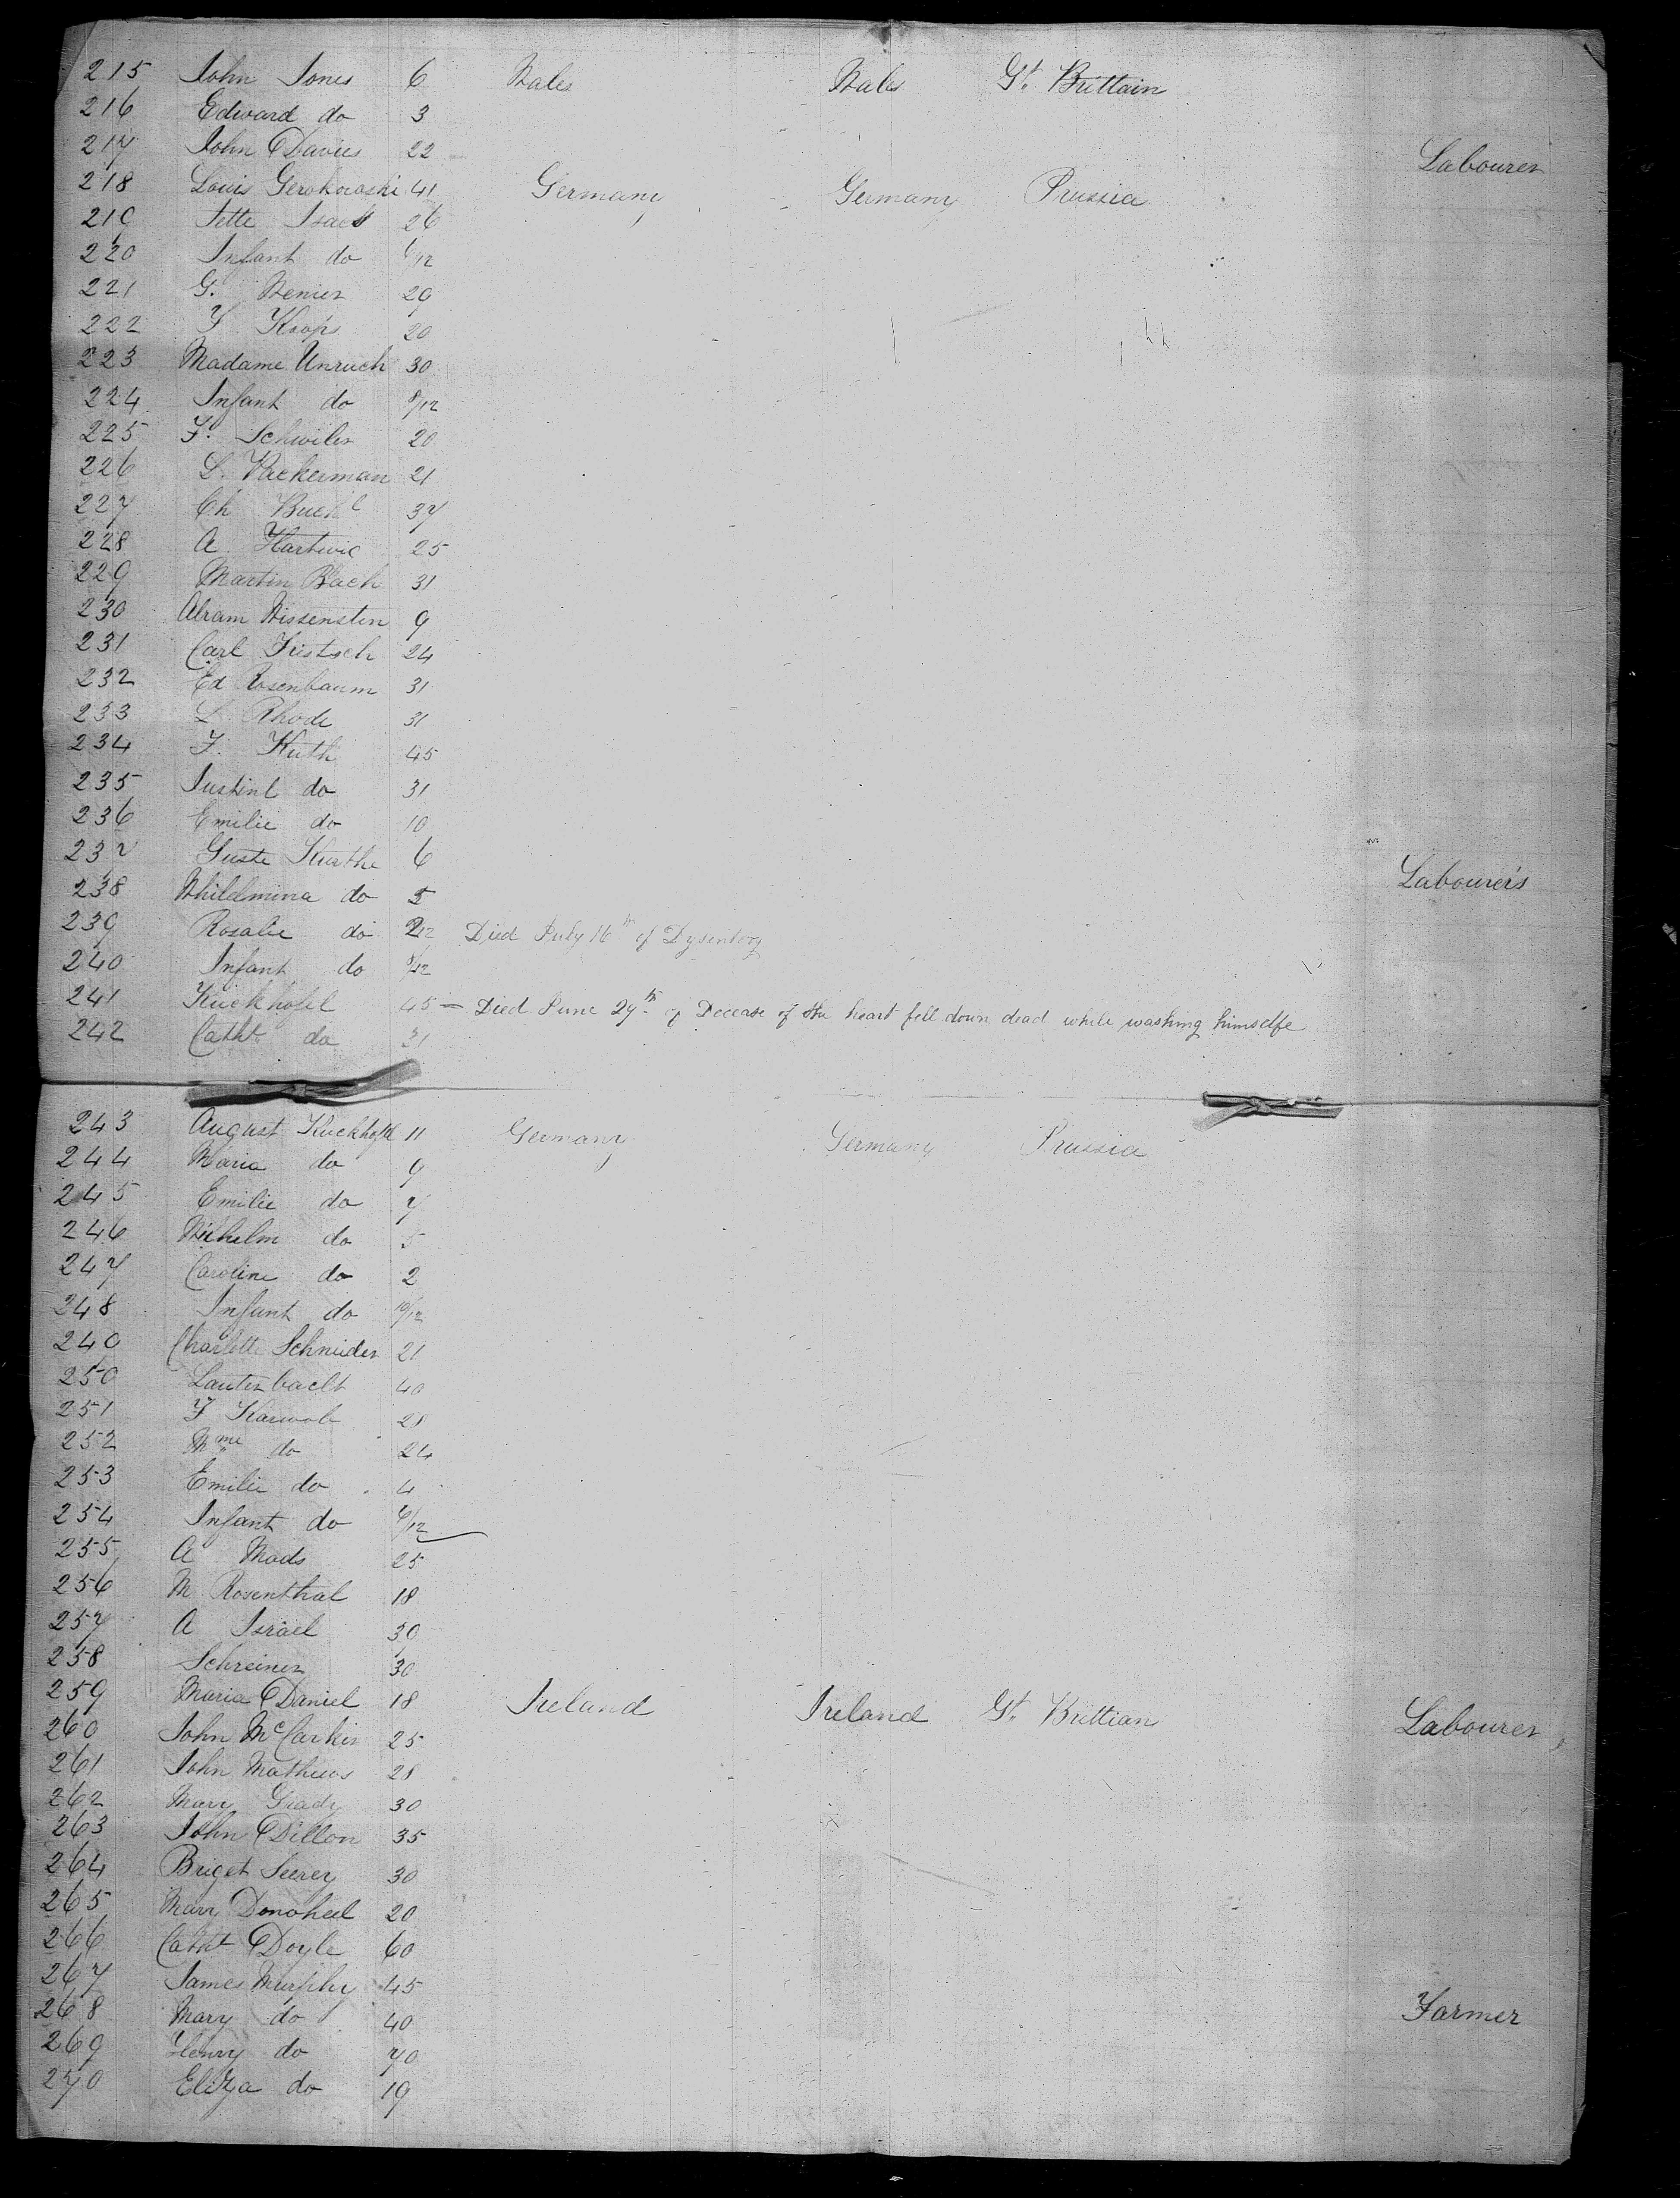 215 John Jones 6 Wales Wales Gt. Brittain
216 Edward do 3
217 John Davies 22 Labourer
218 Louis Gerokowski 41 Germany Germany Prussia
219 Jette Isack 26
220 Infant do 6/12
221 G. Wenier 29
222 F Koops 20
223 Madame Unruch 30
224 Infant do 8/12
225 F. Schwiler 20
226 L. Packerman 21
227 Ch Buchl 37
228 A Hartwic 25
229 Martin Bach 31
230 Abram Wissensten 9
231 Carl Fristsch 24
232 Ed Rosenbaum 31
233 L. Rhode 31
234 F. Kuth 45
235 Justine do 31
236 Emilie do 10
237 Guste Kuthe 6
238 Whilelmina do 5 Labourer's
239 Rosalie do 2 Died July 16th of Dysentery
240 Infant do 8/12
241 Kuckhofel 45 = Died June 29th of Decease of the heart fell down dead while washing himselfe
242 Catht do 31
243 August Kuckhofel 11 Germany Germany Prussia
244 Maria do 9
245 Emilie do 7
246 Wilhelm do 5
247 Caroline do 2
248 Infant do 10/12
249 Charlotte Schneider 21
250 Lauterbacht 40
251 F Karwob 28
252 Mme do 24
253 Emilie do 4
254 Infant do 6/12
255 A Mads 25
256 M Rosenthal 18
257 A Israel 30
258 Schreiner 30
259 Maria Daniel 18 Ireland Ireland Gt. Brittian
260 John McCarkin 25 Labourer
261 John Mathews 28
262 Mary Grady 30
263 John Dillon 35
264 Briget Seerey 30
265 Mary Donoheel 20
266 Catht Doyle 60
267 James Murphy 45
268 Mary do 40 Farmer
269 Henry do 70
270 Eliza do 19